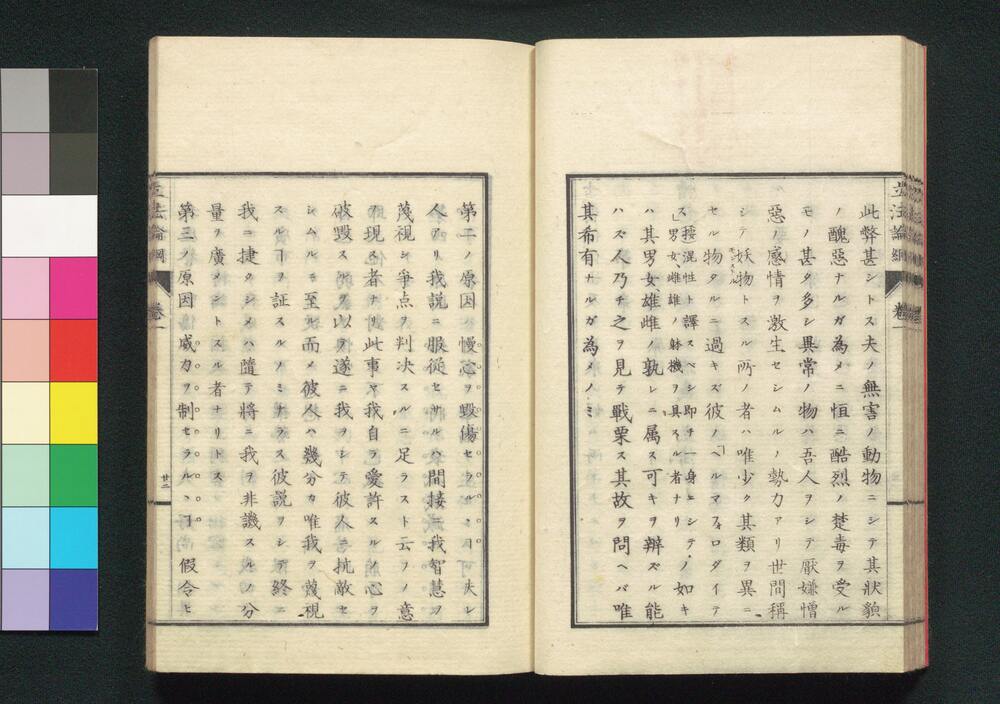 此弊甚シトス夫ノ無害ノ動物ニシテ其狀貌
ノ醜惡ナルガ為メニ恒ニ酷烈ノ楚毒ヲ受ル
モノ甚タ多シ異常ノ物ハ吾人ヲシテ厭嫌憎
惡ノ感情ヲ激生セシムルノ勢力アリ世間稱
シテ妖物トスル所ノ者ハ唯少ク其類ヲ異ニ
モンストル
セル物タルニ過キズ彼ノ「ヘルマフォロダイテ
ス」(按)混性ト譯スベシ即チ一身ニシテ
男女雌雄ノ躰機ヲ具スル者ナリ
ノ如キ
ハ其男女雄雌ノ孰レニ属ス可キヲ辨ズル能
ハズ人乃チ之ヲ見テ戰栗ス其故ヲ問ヘバ唯
其希有ナルガ為メノミ
立法論綱
卷一
第二ノ原因ハ慢心ヲ毀傷セラルヽ
夫レ
人アリ我說ニ服從セザルハ間接ニ我智慧ヲ
蔑視シ爭点ヲ判决スルニ足ラスト云フノ意
ヲ現ス者ナリ此事ヤ我自ラ愛許スルノ心ヲ
破毀スルヲ以テ遂ニ我ヲシテ彼人ニ抗敵セ
シムルモ至ル而メ彼人ハ幾分カ唯我ヲ蔑視
スルヿヲ証スルノミナラス彼説ヲシテ終ニ
我ニ捷タシメハ隨テ將ニ我ヲ非譏スルノ分
量ヲ廣メントスル者ナリトス
第三ノ原因ハ威力ヲ制セラルヽヿ
假令ヒ
立法論綱
卷一
廿二